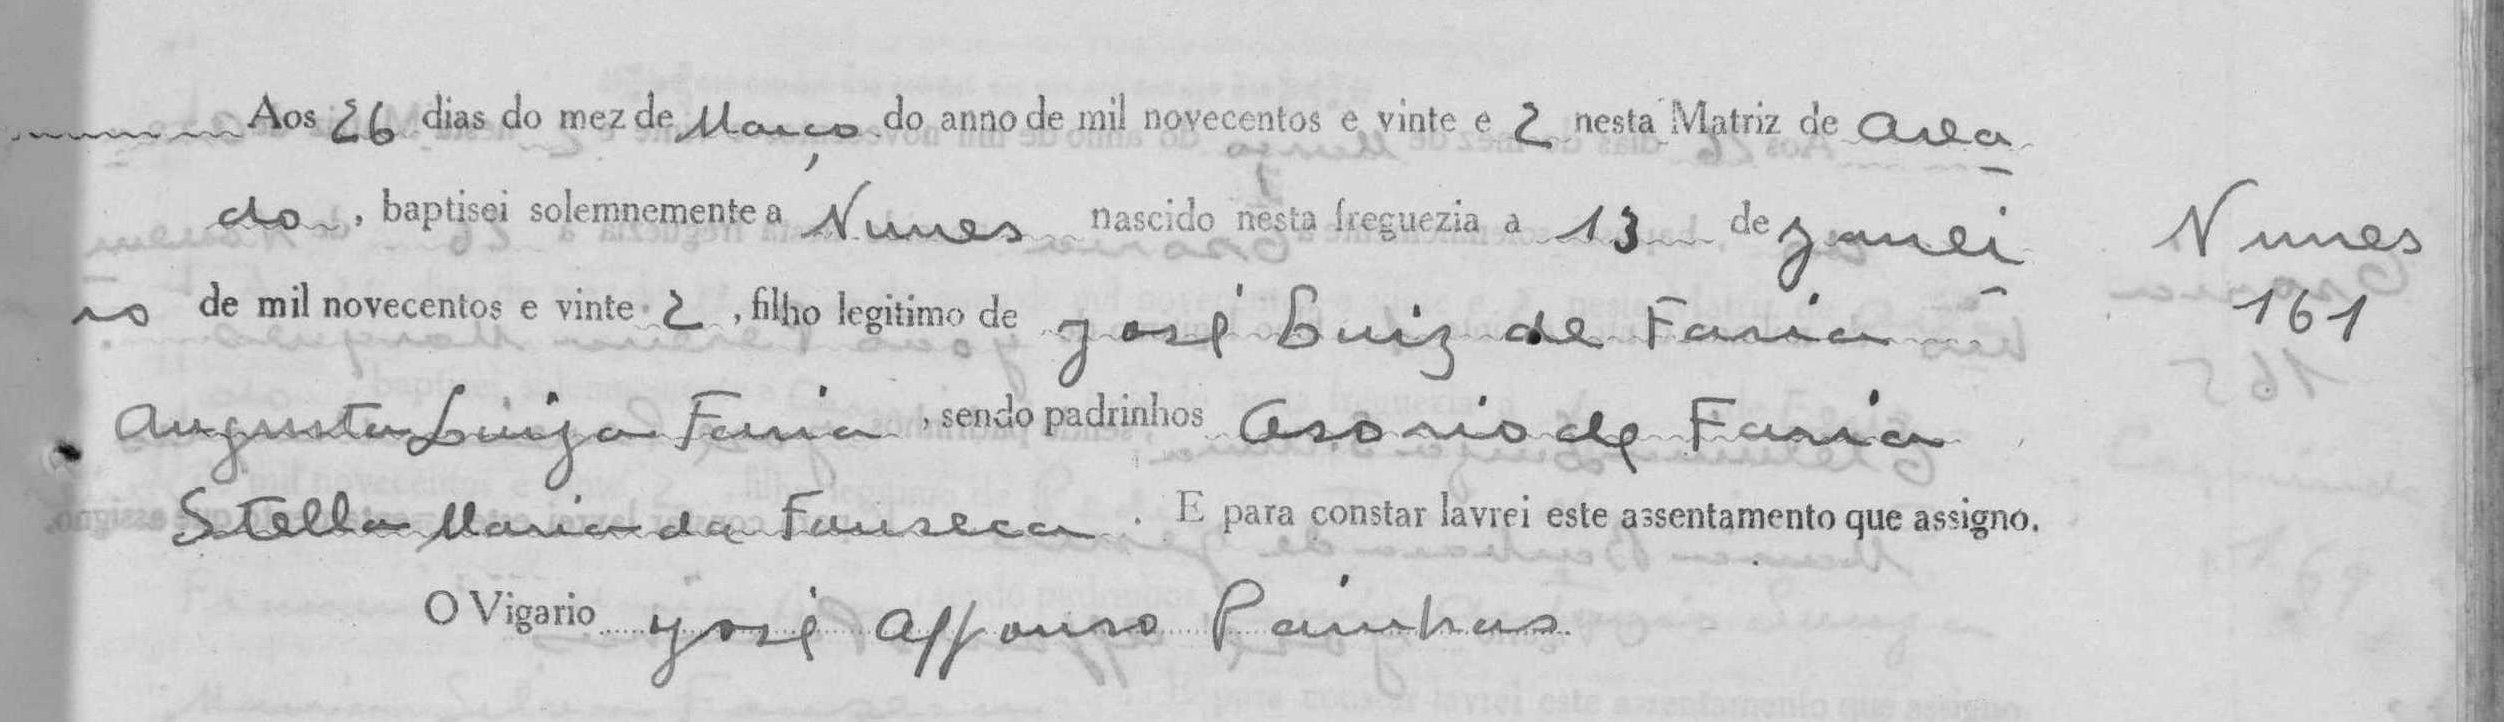 Aos 26 dias do mez de Março do anno de mil novecentos e vinte e 2 nesta Matriz de Area
do, baptisei solemnemente a Nunes nascido nesta freguezia a 13 de Janei Nunes
ro de mil novecentos e vinte 2, filho legitimo de José Luiz de Faria 161
Augusta Luiza Faria, sendo padrinhos Asorio de Faria
Stella Maria da Fonseca. E para constar lavrei este assentamento que assigno.
O Vigario José Affonso Painhas